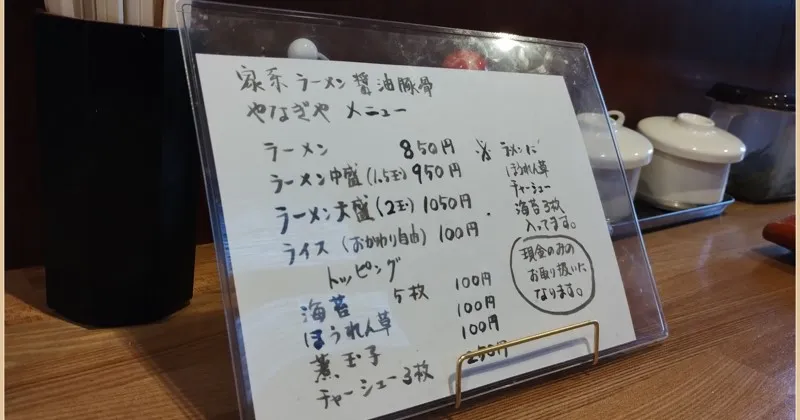 家系ラーメン醤油豚骨
やなぎや メニュー
ラーメン 850円
ラーメン中盛(1.5玉) 950円
ラーメン大盛(2玉) 1050円
ライス(おかわり自由) 100円
トッピング
海苔 5枚 100円
ほうれん草 100円
煮玉子 100円
チャーシュー3枚 250円
※ラーメンに
ほうれん草
チャーシュー
海苔3枚
入ってます。
現金のみの
お取り扱いに
なります。